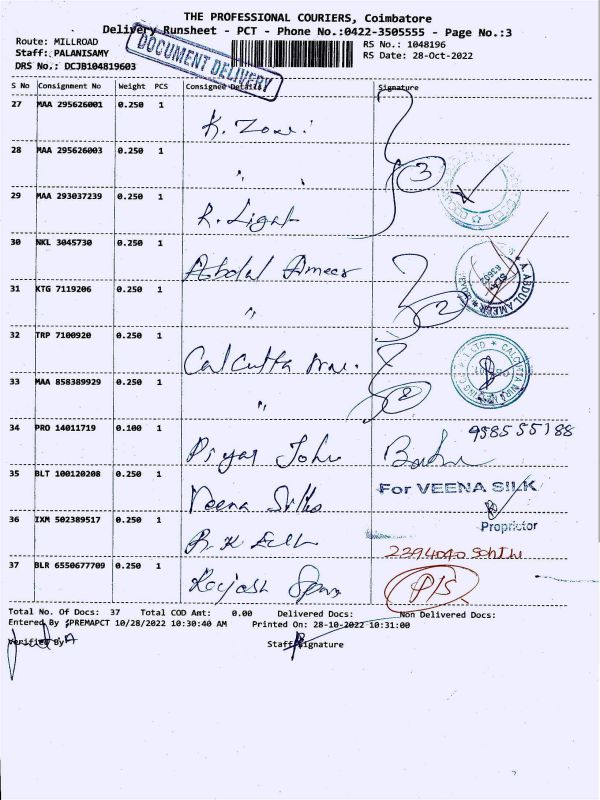 THE PROFESSIONAL COURIERS, Coimbatore
Delivery Runsheet - PCT - Phone No.:0422-3505555 - Page No.:3
Route: MILLROAD
RS No.: 1048196
Staff: PALANISAMY
RS Date: 28-Oct-2022
DRS No.: DCJB104819603
DOCUMENT DELIVERY
S No Consignment No Weight PCS Consignee Details Signature
27 MAA 295626001 0.250 1
28 MAA 295626003 0.250 1 "
3
29 MAA 293037239 0.250 1
30 NKL 3045730 0.250 1 Abdul Ameer
A. ABDUL AMEER
31 KTG 7119206 0.250 1 "
2
32 TRP 7100920 0.250 1 Calcutta
CALCUTTA
33 MAA 858389929 0.250 1 "
2
34 PRO 14011719 0.100 1 John
35 BLT 100120208 0.250 1 Veena Silks
For VEENA SILK
Proprietor
36 IXM 502389517 0.250 1
37 BLR 6550677709 0.250 1 P/S
Total No. Of Docs: 37 Total COD Amt: 0.00 Delivered Docs: Non Delivered Docs:
Entered By :PREMAPCT 10/28/2022 10:30:40 AM Printed On: 28-10-2022 10:31:00
Verified By
Staff Signature